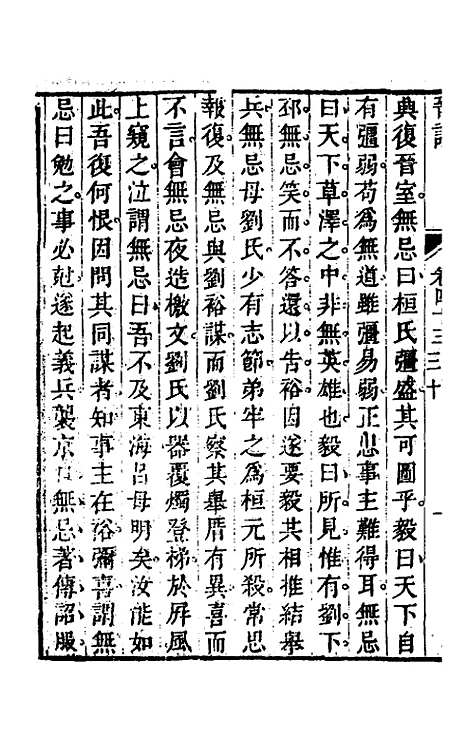 典復晉室無忌曰桓氏彊盛其可圖乎毅曰天下自
有彊弱苟爲無道雖彊易弱正患事主難得耳無忌
曰天下草澤之中非無英雄也毅曰所見惟有劉下
邳無忌笑而不答還以告裕因遂要毅共相推結舉
兵無忌母劉氏少有志節弟牢之爲桓元所殺常思
報復及無忌與劉裕謀而劉氏察其舉厝有異喜而
不言會無忌夜造檄文劉氏以器覆燭登梯於屏風
上窺之泣謂無忌曰吾不及東海呂母明矣汝能如
此吾復何恨因問其同謀者知事主在裕彌喜謂無
忌曰勉之事必尅遂起義兵襲京口無忌著傳詔服